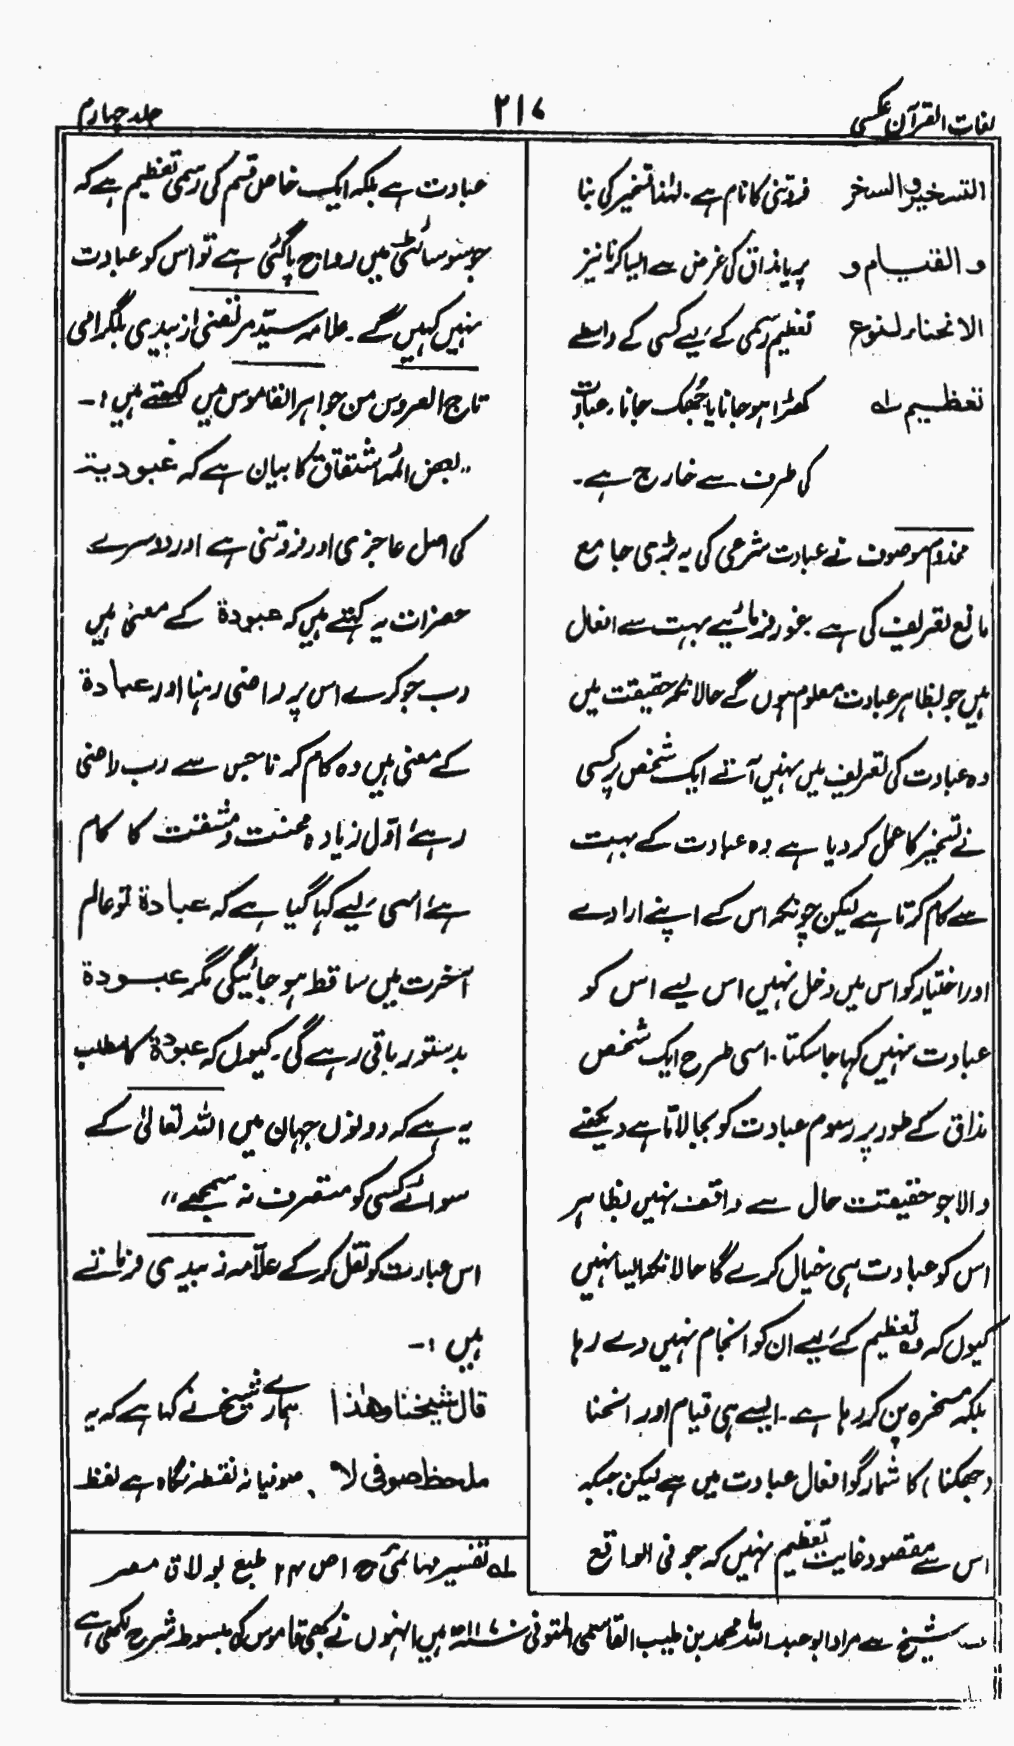 لغات القرآن عکسی
۲۱۷
جلد چہارم
التسخیر والسخر فروتنی کا نام ہے۔ لہٰذا تسخیر کی بنا
و القیام و پر یا مذاق کی غرض سے ایسا کرنا نیز
الانحناء لنوع تعظیم رسمی کے لیے کسی کے واسطے
تعظیم لہ کھڑا ہو جانا یا جھک جانا۔ عبادت
کی طرف سے خارج ہے۔
مخدوم موصوف نے عبادت شرعی کی یہ بڑی جامع
مانع تعریف کی ہے۔ غور فرمائیے بہت سے افعال
ہیں جو بظاہر عبادت معلوم ہوں گے حالانکہ حقیقت میں
وہ عبادت کی تعریف میں نہیں آتے ایک شخص پر کسی
نے تسخیر کا عمل کر دیا ہے وہ عبادت کے بہت
سے کام کرتا ہے لیکن چونکہ اس کے اپنے ارادے
اور اختیار کو اس میں دخل نہیں اس لیے اس کو
عبادت نہیں کہا جا سکتا۔ اسی طرح ایک شخص
مذاق کے طور پر رسوم عبادت کو بجا لاتا ہے دیکھنے
والا جو حقیقت حال سے واقف نہیں بظاہر
اس کو عبادت ہی خیال کرے گا حالانکہ ایسا نہیں
کیوں کہ وہ تعظیم کے لیے ان کو انجام نہیں دے رہا
بلکہ مسخرہ پن کر رہا ہے۔ ایسے ہی قیام اور انحنا
(جھکنا) کا شمار گو افعال عبادت میں ہے لیکن جبکہ
اس سے مقصود غایت تعظیم نہیں کہ جو فی الواقع
عبادت ہے بلکہ ایک خاص قسم کی رسمی تعظیم ہے کہ
جو سوسائٹی میں رواج پا گئی ہے تو اس کو عبادت
نہیں کہیں گے۔ علامہ سید مرتضیٰ زبیدی بلگرامی
تاج العروس من جواہر القاموس میں لکھتے ہیں :۔
"بعض ائمہ اشتقاق کا بیان ہے کہ عبودیۃ
کی اصل عاجزی اور فروتنی ہے اور دوسرے
حضرات یہ کہتے ہیں کہ عبودۃ کے معنی ہیں
رب جو کرے اس پر راضی رہنا اور عبادۃ
کے معنی ہیں وہ کام کرنا جس سے رب راضی
رہے اول زیادہ محنت و مشقت کا کام
ہے اسی لیے کہا گیا ہے کہ عبادۃ تو عالم
آخرت میں ساقط ہو جائیگی مگر عبودۃ
بدستور باقی رہے گی۔ کیوں کہ عبودۃ کا مطلب
یہ ہے کہ دونوں جہان میں اللہ تعالیٰ کے
سوائے کسی کو متصرف نہ سمجھے"
اس عبارت کو نقل کر کے علامہ زبیدی فرماتے
ہیں :۔
قال شیخنا وھٰذا ہمارے شیخ نے کہا ہے کہ یہ
ملحظ صوفی لا صوفیانہ نقطہ نگاہ ہے لفظ
لہ تفسیر مہائمی ج ۱ ص ۲۴ طبع بولاق مصر
شیخ سے مراد ابو عبد اللہ محمد بن طیب الفاسی المتوفی ۱۱۷۰ھ ہیں انہوں نے بھی قاموس کی مبسوط شرح لکھی ہے